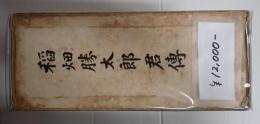 稲畑勝太郎君傳
¥12,000-